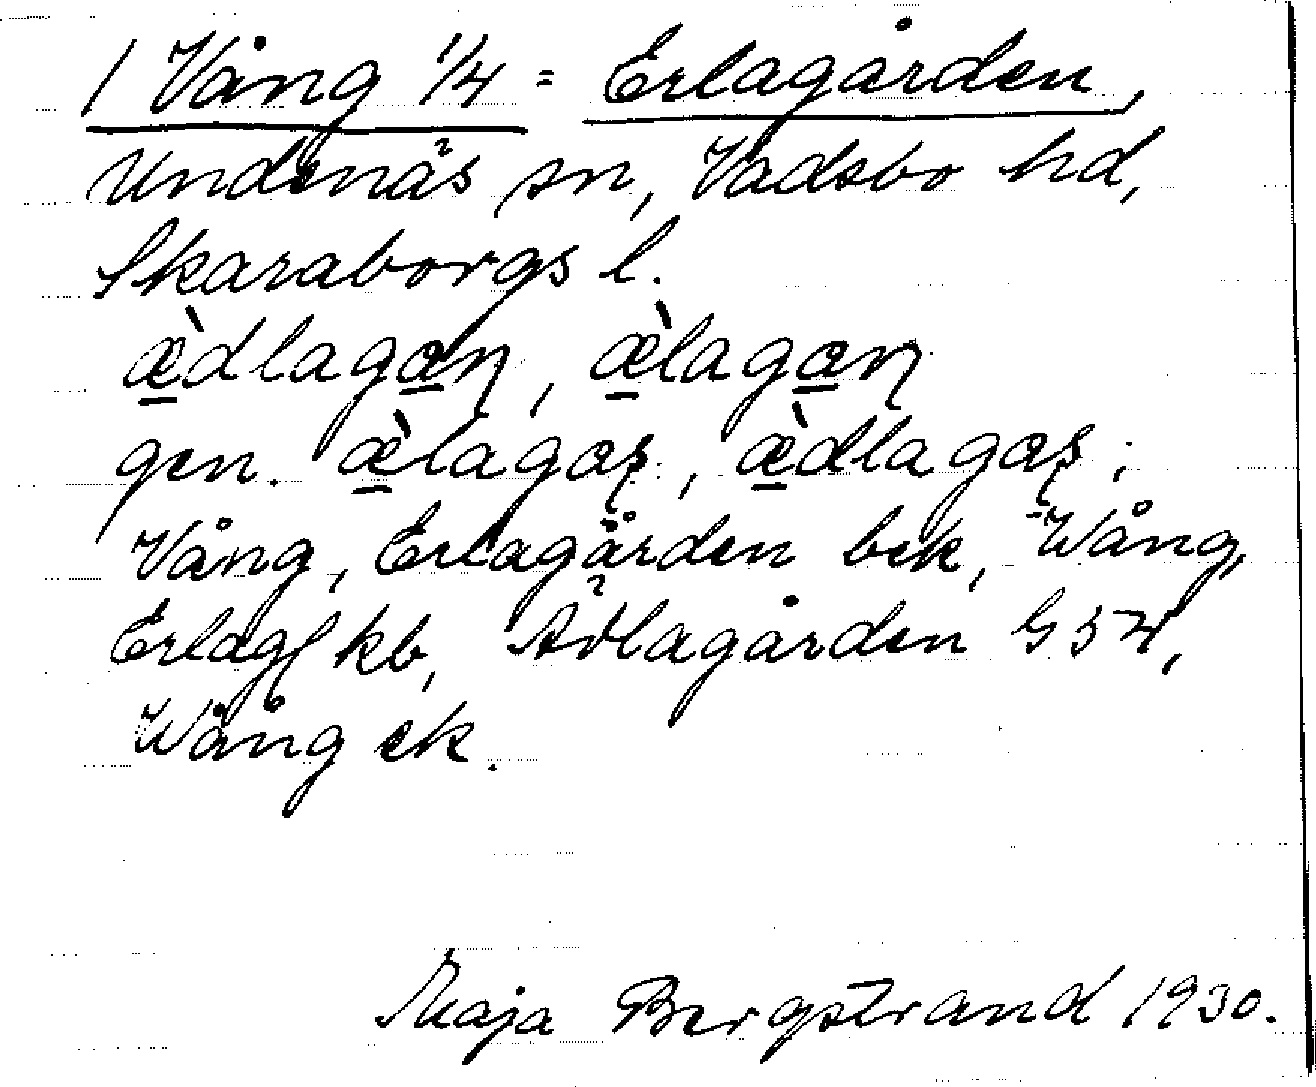 1 Vång 1/4 = Erlagården,
Undenäs sn, Vadsbo hd,
Skaraborgs l.
æ̀dlagaņ, æ̀lagaņ
gen. æ̀lagaş, æ̀dlagaş;
Vång, Erlagården bek, Wång,
Erlag kb, Ädlagården G 54,
Wång ek.
Maja Bergstrand 1930.